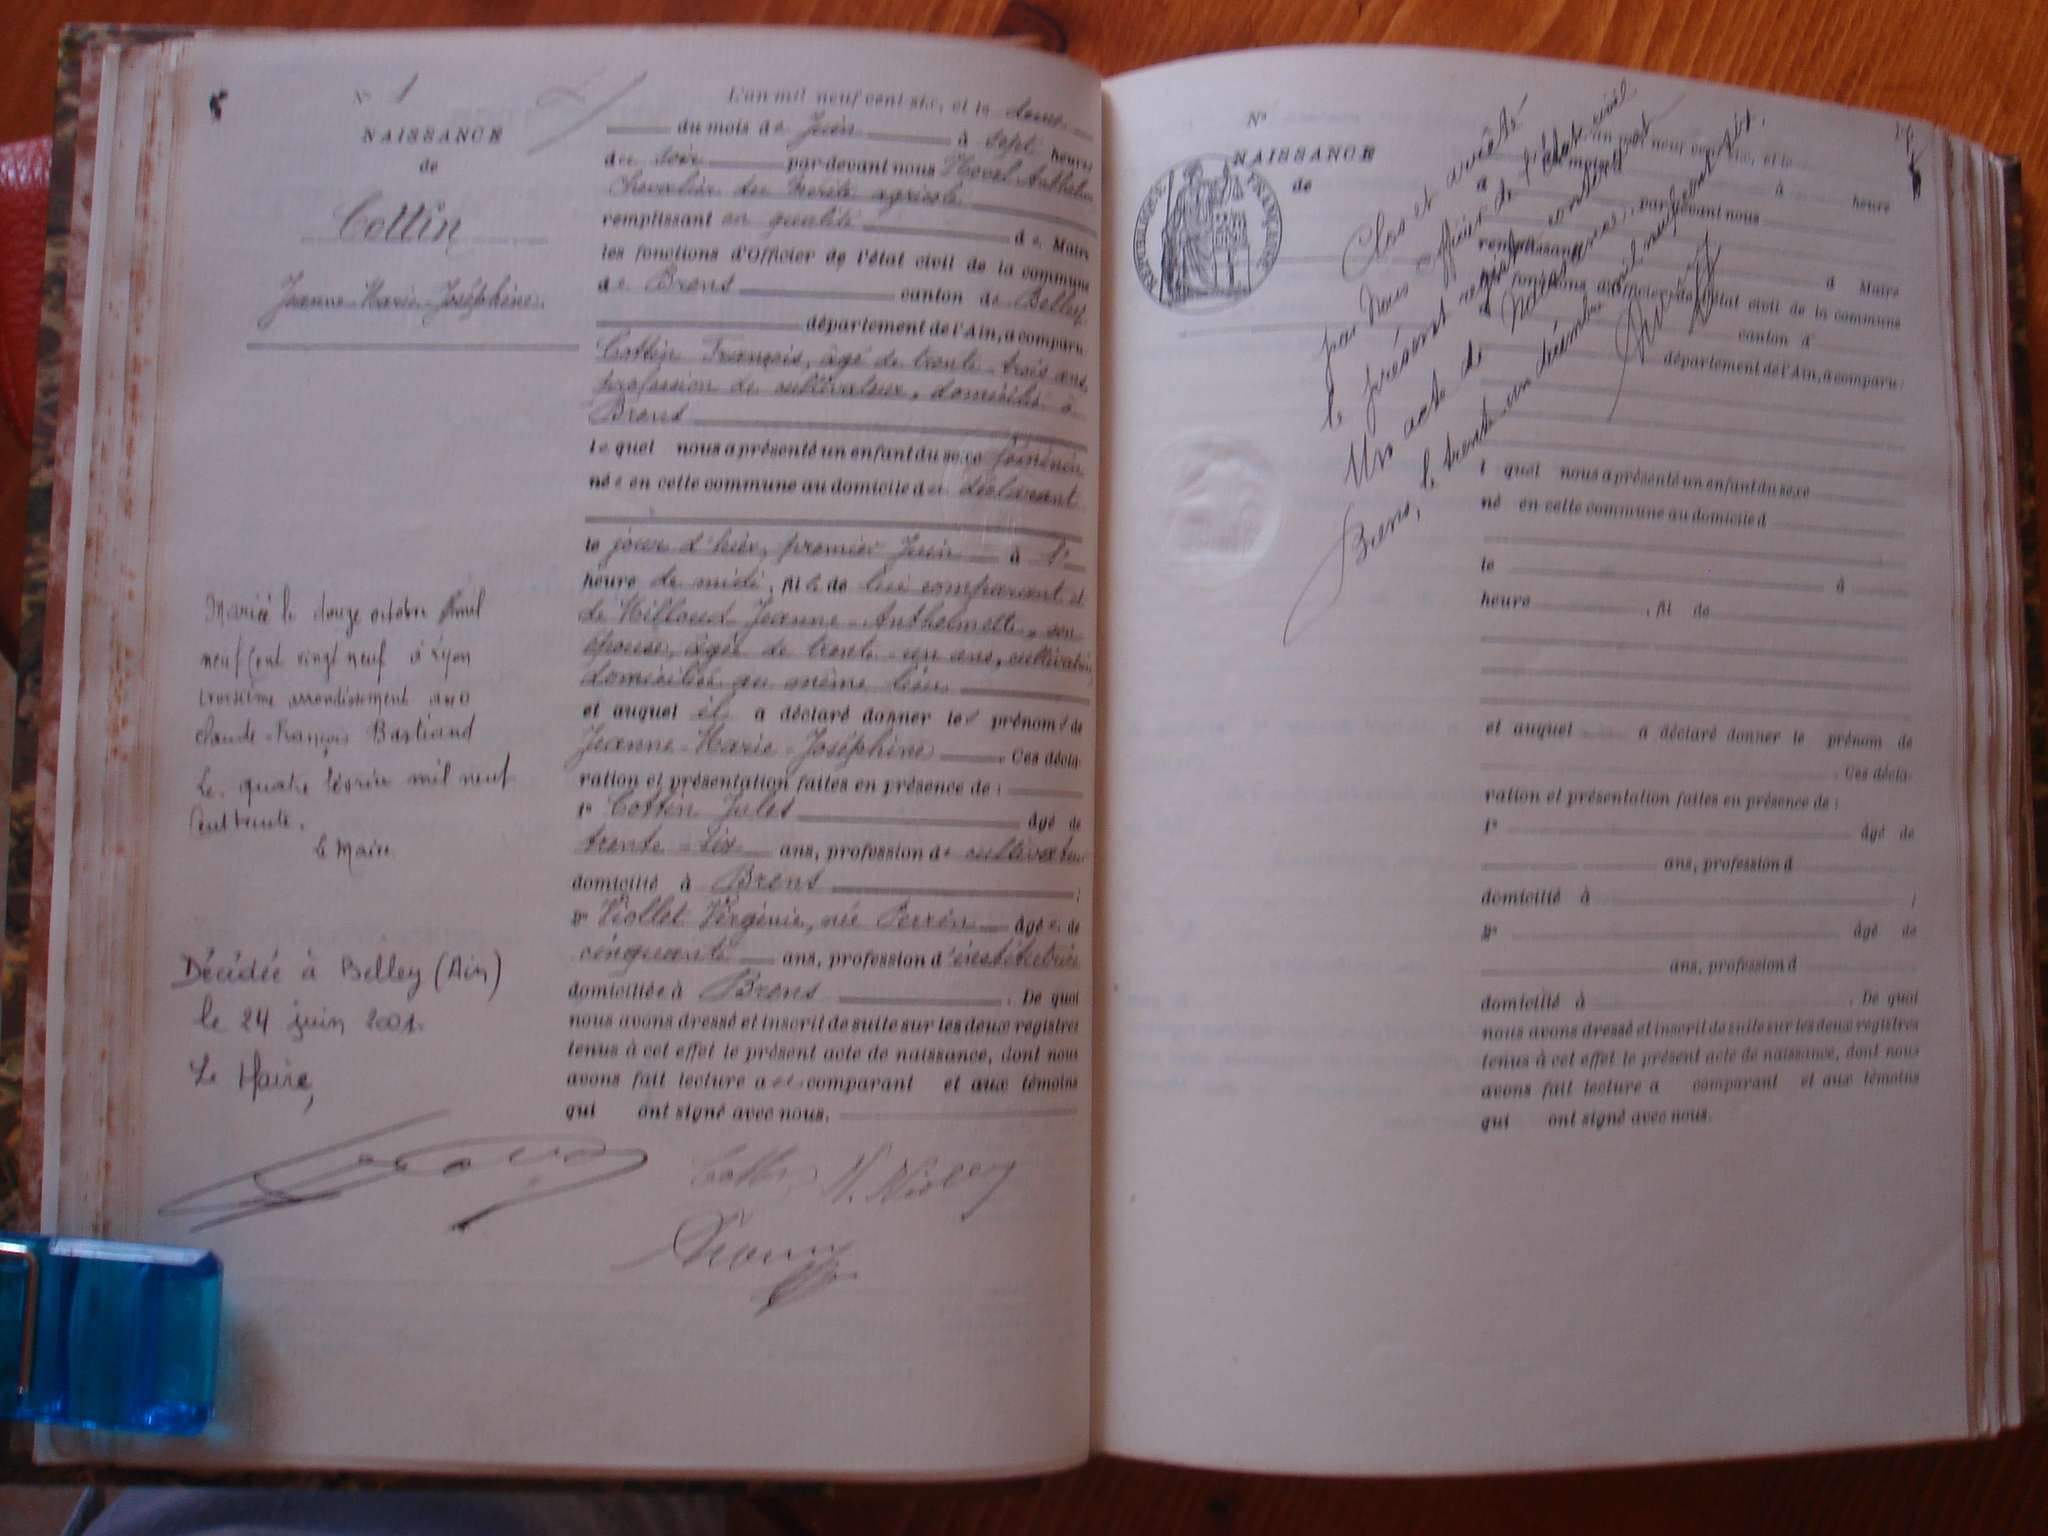 N° 1
NAISSANCE
de
Cottin
Jeanne-Marie-Joséphine.
Mariée le douze octobre mil
neuf cent vingt neuf à Lyon
troisième arrondissement avec
Claude-François Bastiand
Le quatre février mil neuf
cent trente.
Le Maire
Décédée à Belley (Ain)
le 24 juin 2001.
Le Maire,
L'an mil neuf cent six, et le deux
du mois de Juin à sept heures
du soir par-devant nous Anthelme
Chevalier du Mérite agricole
remplissant en qualité de Maire
les fonctions d'Officier de l'état civil de la commune
de Brens canton de Belley
département de l'Ain, a comparu
Cottin François, âgé de trente-trois ans,
profession de cultivateur, domicilié à
Brens
lequel nous a présenté un enfant du sexe féminin
née en cette commune au domicile du déclarant
le jour d'hier, premier Juin à 1e
heure de midi, fille de lui comparant et
de Milloud Jeanne-Anthelmette, son
épouse, âgée de trente-un ans, cultivatrice
domiciliée au même lieu
et auquel il a déclaré donner les prénoms de
Jeanne-Marie-Joséphine. Ces décla-
ration et présentation faites en présence de :
1° Cottin Jules âgé de
trente-six ans, profession de cultivateur
domicilié à Brens ;
2° Viollet Virginie, née Perrin âgée de
cinquante ans, profession d'institutrice
domiciliée à Brens. De quoi
nous avons dressé et inscrit de suite sur les deux registres
tenus à cet effet le présent acte de naissance, dont nous
avons fait lecture au comparant et aux témoins
qui ont signé avec nous.
Cottin V. Viollet
N°
NAISSANCE
de
RÉPUBLIQUE FRANÇAISE
Clos et arrêté
par Nous officier de l'état civil
le présent registre contenant
Un acte de Naissance.
Brens, le trente un décembre mil neuf cent six.
an mil neuf cent six, et le
du mois d à heure
par-devant nous
remplissant d Maire
les fonctions d'Officier de l'état civil de la commune
canton d
département de l'Ain, a comparu
l quel nous a présenté un enfant du sexe
né en cette commune au domicile d
le à
heure , fil de
et auquel a déclaré donner le prénom de
. Ces décla-
ration et présentation faites en présence de :
1° âgé de
ans, profession d
domicilié à ;
2° âgé de
ans, profession d
domicilié à . De quoi
nous avons dressé et inscrit de suite sur les deux registres
tenus à cet effet le présent acte de naissance, dont nous
avons fait lecture a comparant et aux témoins
qui ont signé avec nous.